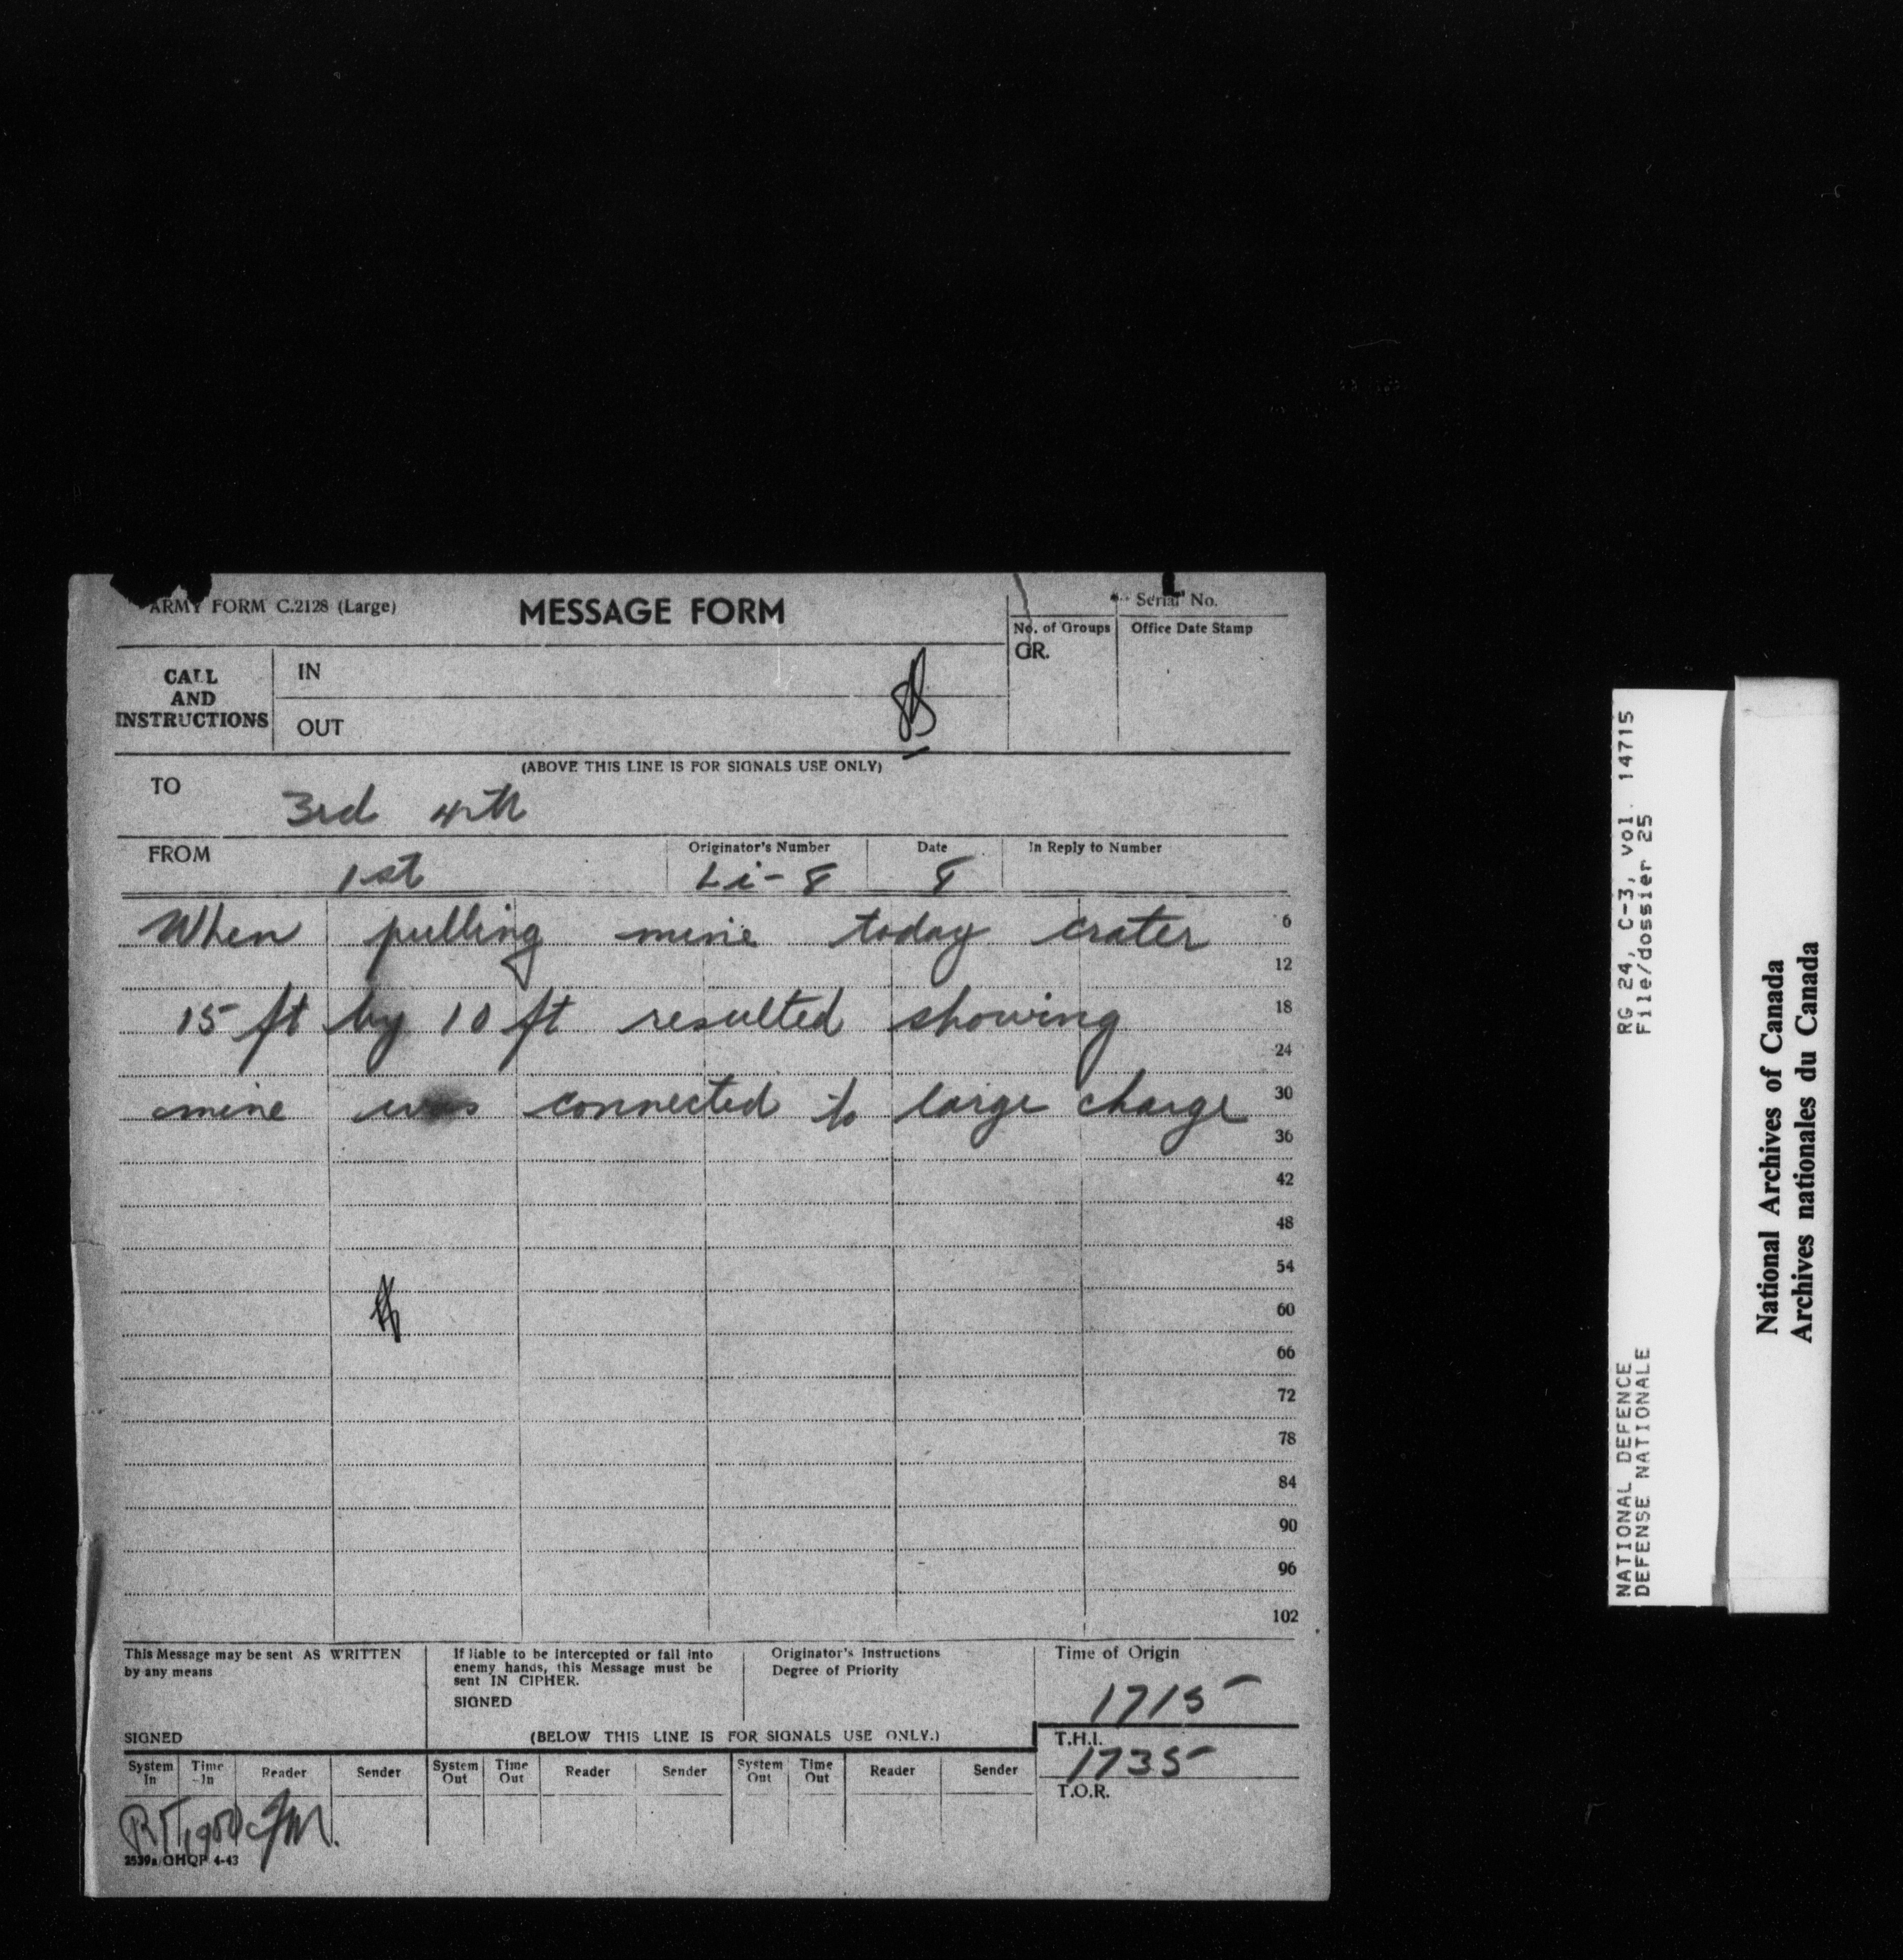 ARMY FORM C.2128 (Large)
MESSAGE FORM
Serial No.
No. of Groups
GR.
Office Date Stamp
CALL
AND
INSTRUCTIONS
IN
OUT
(ABOVE THIS LINE IS FOR SIGNALS USE ONLY)
TO
3rd 4th
FROM
1st
Originator's Number
Li-8
Date
8
In Reply to Number
When pulling mine today crater
6
12
15 ft by 10 ft resulted showing
18
24
mine was connected to large charge
30
36
42
48
54
60
66
72
78
84
90
96
102
This Message may be sent AS WRITTEN
by any means
SIGNED
If liable to be intercepted or fall into
enemy hands, this Message must be
sent IN CIPHER.
SIGNED
Originator's Instructions
Degree of Priority
Time of Origin
1715
(BELOW THIS LINE IS FOR SIGNALS USE ONLY.)
T.H.I.
1735
T.O.R.
System In
Time In
Reader
Sender
System Out
Time Out
Reader
Sender
System Out
Time Out
Reader
Sender
2539a/GHQP 4-43
NATIONAL DEFENCE RG 24, C-3, vol. 14715
DEFENSE NATIONALE File/dossier 25
National Archives of Canada
Archives nationales du Canada